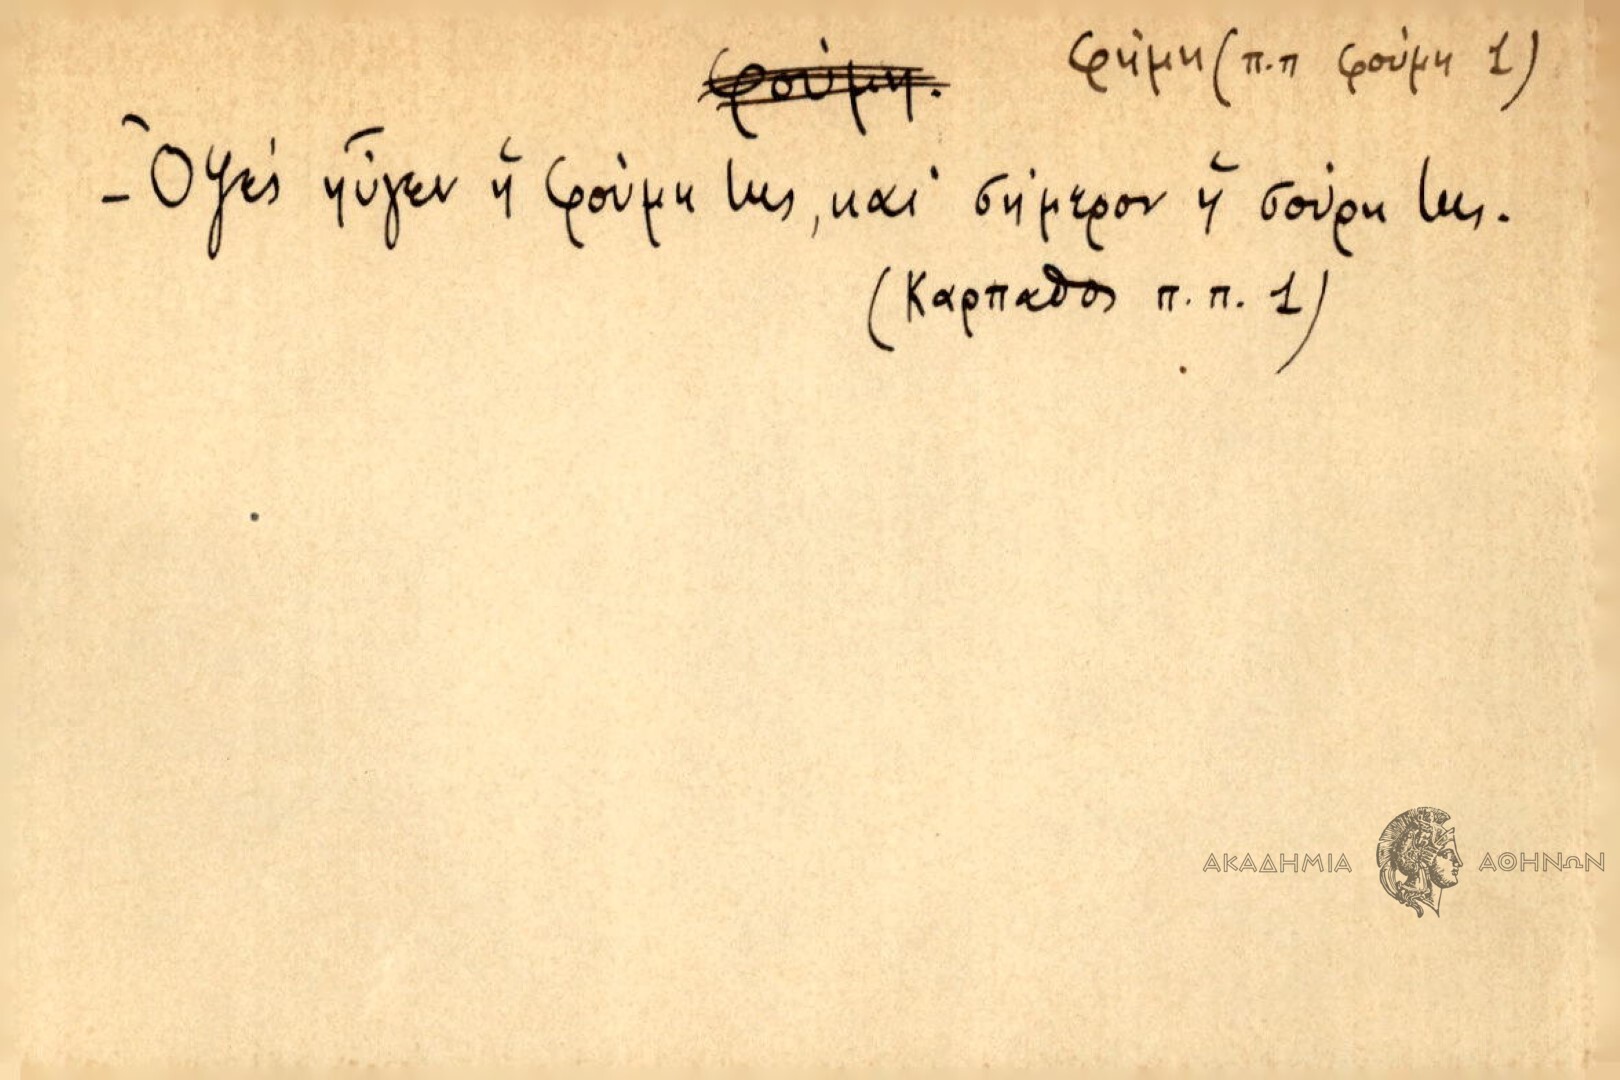 φρούμη. φήμη (π.π φούμη 1)
– Ὀψὲς ηὖγεν ἡ φούμη της, καὶ σήμερον ἡ σούρη της.
(Καρπαθος π. π. 1)
ΑΚΑΔΗΜΙΑ ΑΘΗΝΩΝ